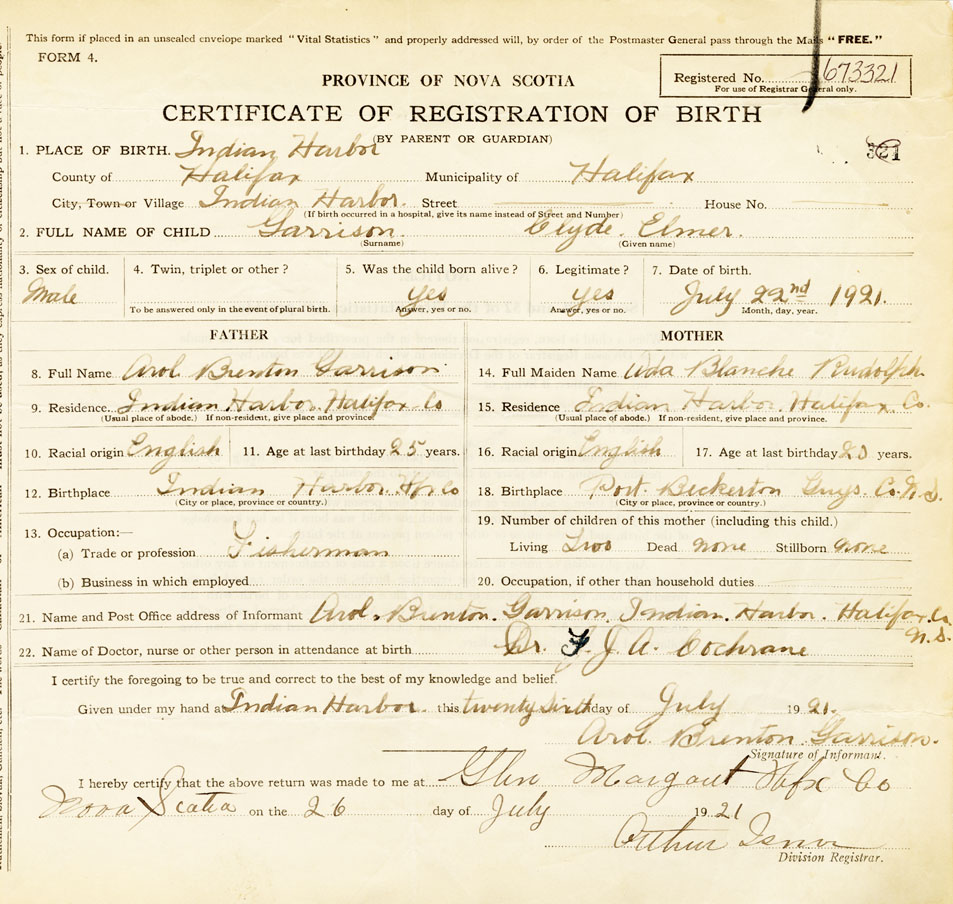 This form if placed in an unsealed envelope marked "Vital Statistics" and properly addressed will, by order of the Postmaster General pass through the Mails "FREE."
FORM 4.
PROVINCE OF NOVA SCOTIA
Registered No. 673321
For use of Registrar General only.
CERTIFICATE OF REGISTRATION OF BIRTH
(BY PARENT OR GUARDIAN)
321
1. PLACE OF BIRTH. Indian Harbor
County of Halifax Municipality of Halifax
City, Town or Village Indian Harbor. Street House No.
(If birth occurred in a hospital, give its name instead of Street and Number)
2. FULL NAME OF CHILD Garrison. Clyde. Elmer.
(Surname) (Given name)
3. Sex of child. 4. Twin, triplet or other? 5. Was the child born alive? 6. Legitimate? 7. Date of birth.
Male yes yes July 22nd 1921.
To be answered only in the event of plural birth. Answer, yes or no. Answer, yes or no. Month, day, year.
FATHER MOTHER
8. Full Name Arol Brenton Garrison 14. Full Maiden Name Ada Blanche Rudolph
9. Residence. Indian Harbor Halifax Co 15. Residence Indian Harbor Halifax Co.
(Usual place of abode.) If non-resident, give place and province. (Usual place of abode.) If non-resident, give place and province.
10. Racial origin English 11. Age at last birthday 25 years. 16. Racial origin English 17. Age at last birthday 20 years.
12. Birthplace Indian Harbor. Hfx Co 18. Birthplace Port Beckerton Guys. Co. N. S.
(City or place, province or country.) (City or place, province or country.)
13. Occupation:— 19. Number of children of this mother (including this child.)
(a) Trade or profession Fisherman Living Two Dead none Stillborn none
(b) Business in which employed 20. Occupation, if other than household duties
21. Name and Post Office address of Informant Arol. Brenton. Garrison, Indian Harbor. Halifax. Co.
N. S.
22. Name of Doctor, nurse or other person in attendance at birth Dr. F. J. A. Cochrane
I certify the foregoing to be true and correct to the best of my knowledge and belief.
Given under my hand at Indian Harbor. this twenty Sixth day of July 1921.
Arol Brenton Garrison.
Signature of Informant.
I hereby certify that the above return was made to me at Glen Margaret Hfx Co
Nova Scotia on the 26 day of July 1921
Arthur Isnor
Division Registrar.